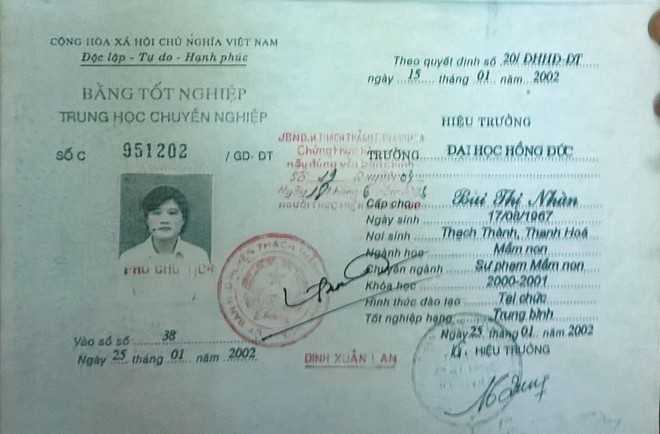 CỘNG HÒA XÃ HỘI CHỦ NGHĨA VIỆT NAM
Độc lập - Tự do - Hạnh phúc
BẰNG TỐT NGHIỆP
TRUNG HỌC CHUYÊN NGHIỆP
SỐ C 951202 / GD-ĐT
PHÓ CHỦ TỊCH
Vào sổ số 38
Ngày 25 tháng 01 năm 2002
ĐINH XUÂN LAN
Theo quyết định số 20/ ĐHHĐ-ĐT
ngày 15 tháng 01 năm 2002
HIỆU TRƯỞNG
TRƯỜNG ĐẠI HỌC HỒNG ĐỨC
Cấp cho Bùi Thị Nhàn
Ngày sinh 17/08/1967
Nơi sinh Thạch Thành, Thanh Hoá
Ngành học Mầm non
Chuyên ngành Sư phạm Mầm non
Khóa học 2000-2001
Hình thức đào tạo Tại chức
Tốt nghiệp hạng Trung bình
Ngày 25 tháng 01 năm 2002
HIỆU TRƯỞNG